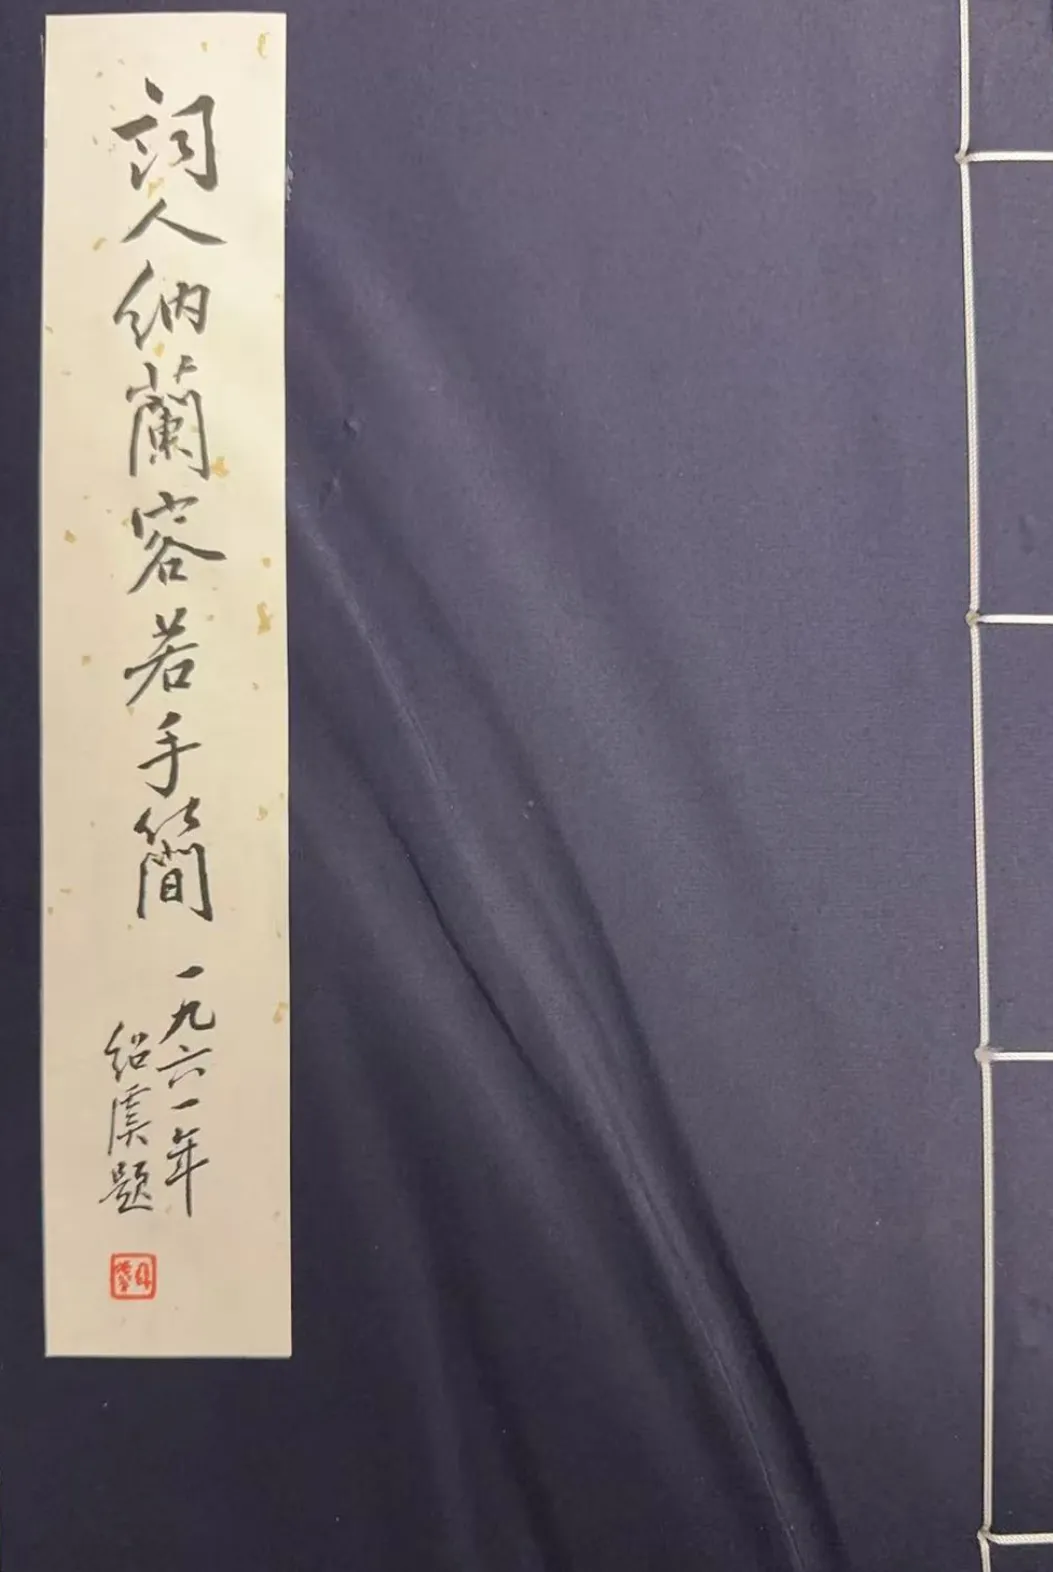 詞人納蘭容若手簡
一九六一年
紹虞題